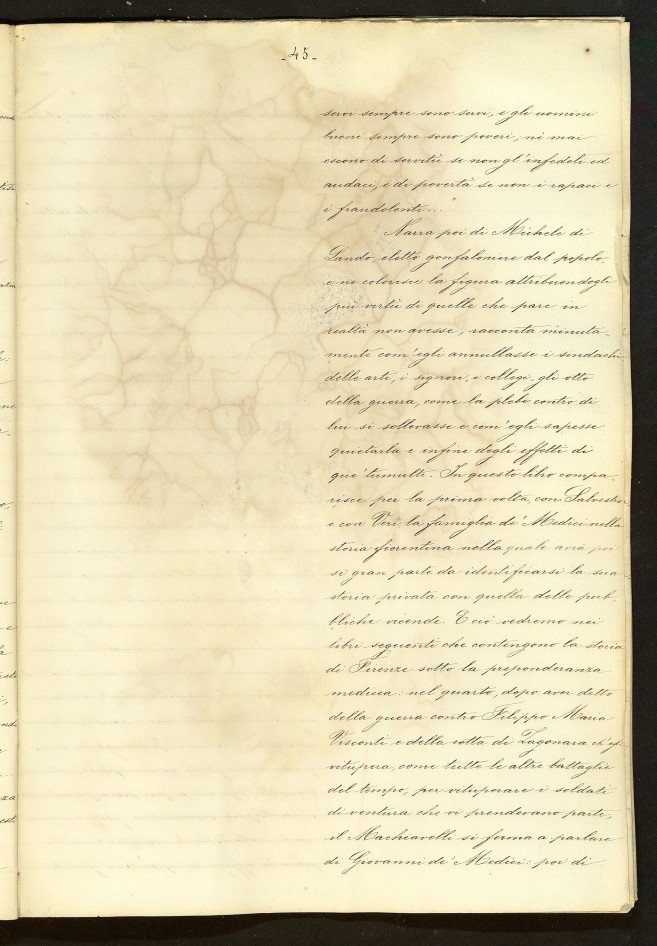 - 45 -
servi sempre sono servi, e gli uomini
buoni sempre sono poveri; nè mai
escono di servitù se non gl'infedeli ed
audaci, e di povertà se non i rapaci e
i fraudolenti..."
Narra poi di Michele di
Lando, eletto gonfaloniere dal popolo
e ne colorisce la figura attribuendogli
più virtù di quelle che pare in
realtà non avesse; racconta minuta-
mente com'egli annullasse i sindachi
delle arti, i signori, e collegi, gli otto
della guerra, come la plebe contro di
lui si sollevasse e com'egli sapesse
quietarla e infine degli effetti di
que' tumulti. In questo libro compa-
risce per la prima volta, con Salvestro
e con Veri la famiglia de' Medici nella
storia fiorentina nella quale avrà poi
sì gran parte da identificarsi la sua
storia privata con quella delle pub-
bliche vicende. E ciò vedremo nei
libri seguenti che contengono la storia
di Firenze sotto la preponderanza
medicea: nel quarto, dopo aver detto
della guerra contro Filippo Maria
Visconti e della rotta di Zagonara ch'ei
vitupera, come tutte le altre battaglie
del tempo, per vituperare i soldati
di ventura che vi prendevano parte,
il Machiavelli si ferma a parlare
di Giovanni de' Medici: poi di